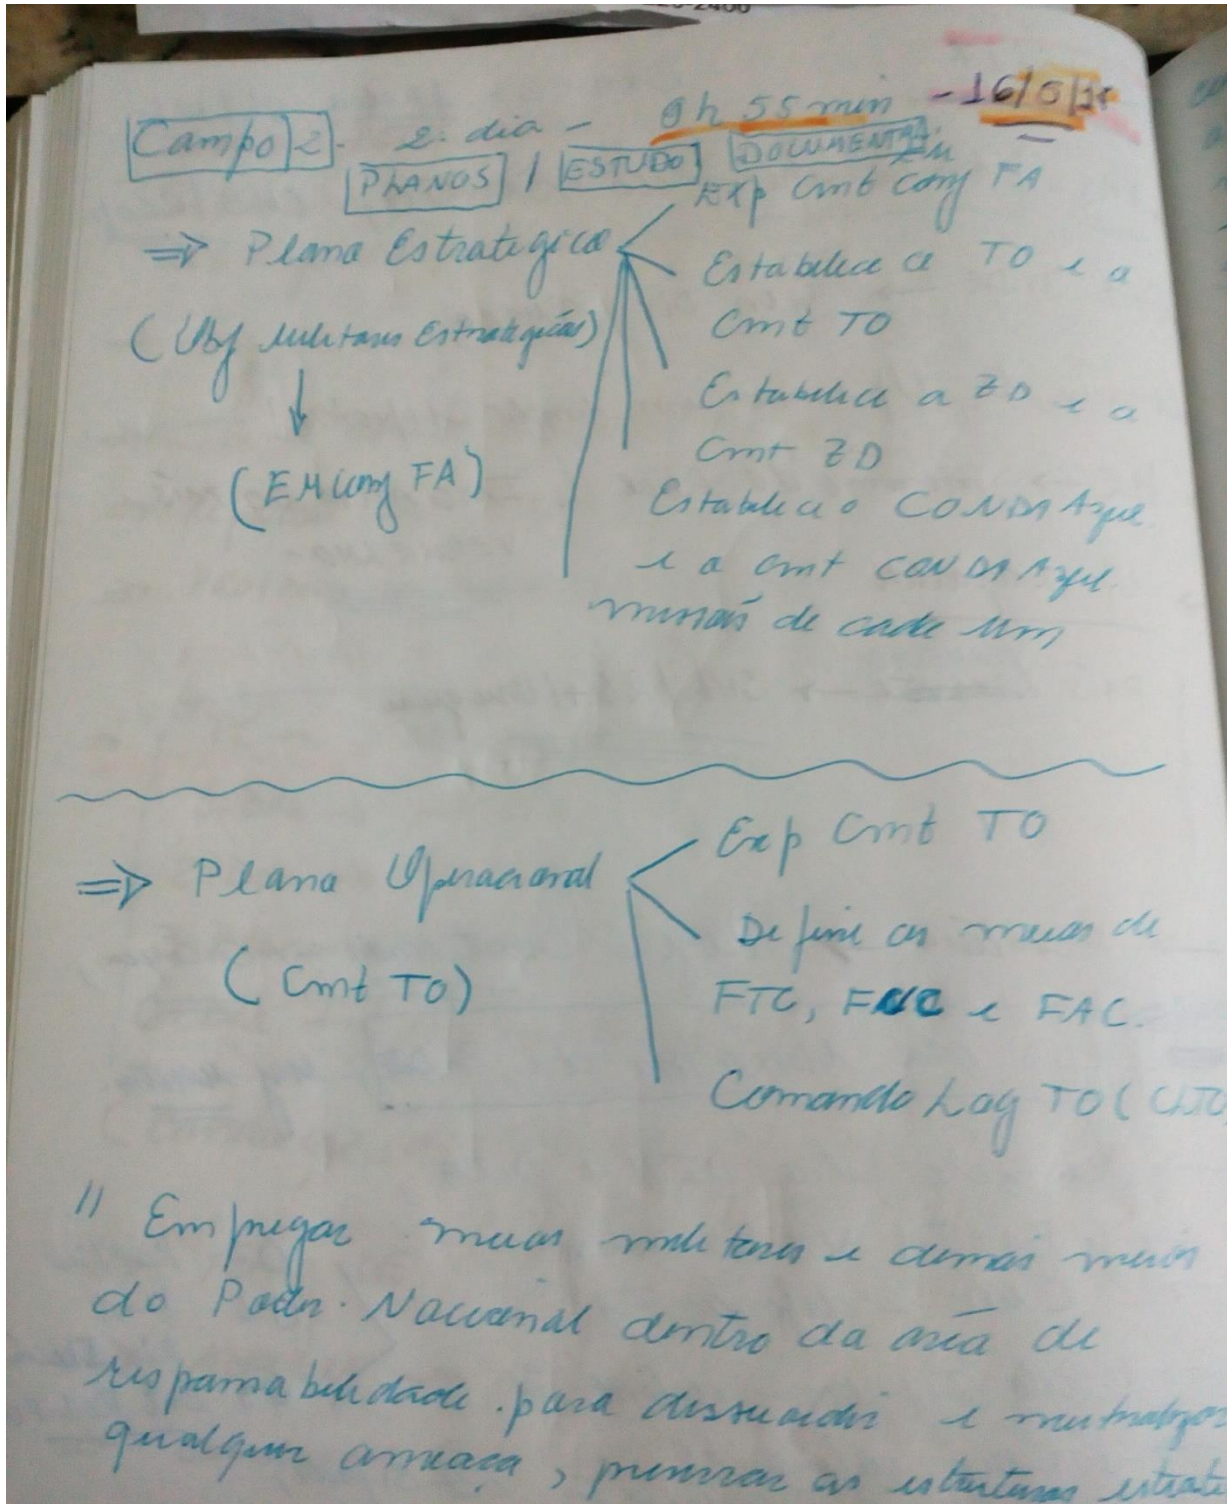 Campo 2. 2º dia - 9h 55 min - 16/5/
PLANOS / ESTUDO DOCUMENTAL
⇒ Plano Estratégico
(Obj Militares Estratégicos)
↓
(EM Conj FA)
Exp Cmt EM Conj FA
Estabelece o TO e o
Cmt TO
Estabelece a ZD e o
Cmt ZD
Estabelece o CONDA Azul
e o Cmt CONDA Azul.
missões de cada um
⇒ Plano Operacional
(Cmt TO)
Exp Cmt TO
Define os meios de
FTC, FNC e FAC.
Comando Log TO (CLTO
" Empregar meios militares e demais meios
do Poder Nacional dentro da área de
responsabilidade para dissuadir e neutralizar
qualquer ameaça, preservar as estruturas estraté